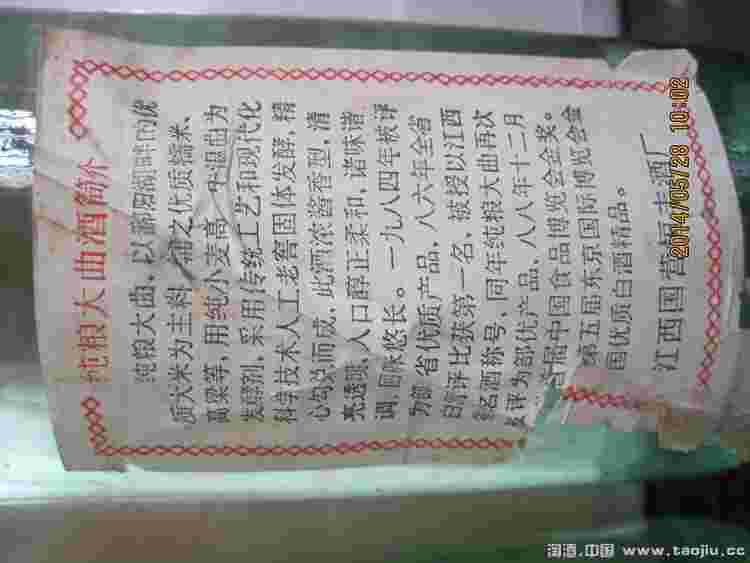 纯粮大曲酒简介
纯粮大曲，以鄱阳湖畔的优
质大米为主料，辅之优质糯米、
高粱等，用纯小麦高 温曲为
发酵剂，采用传统工艺和现代化
科学技术人工老窖固体发酵，精
心勾兑而成，此酒浓酱香型，清
亮透 入口醇正柔和，诸味谐
调，回味悠长。一九八四年被评
为部、省优质产品，八六年全省
白酒评比获第一名，被授以江西
名酒称号，同年纯粮大曲再次
评为部优产品，八八年十二月
首届中国食品博览会金奖。
第五届东京国际博览会金
国优质白酒精品。
江西国营 酒厂
2014/05/28 10:02
淘酒.中国 www.taojiu.cc